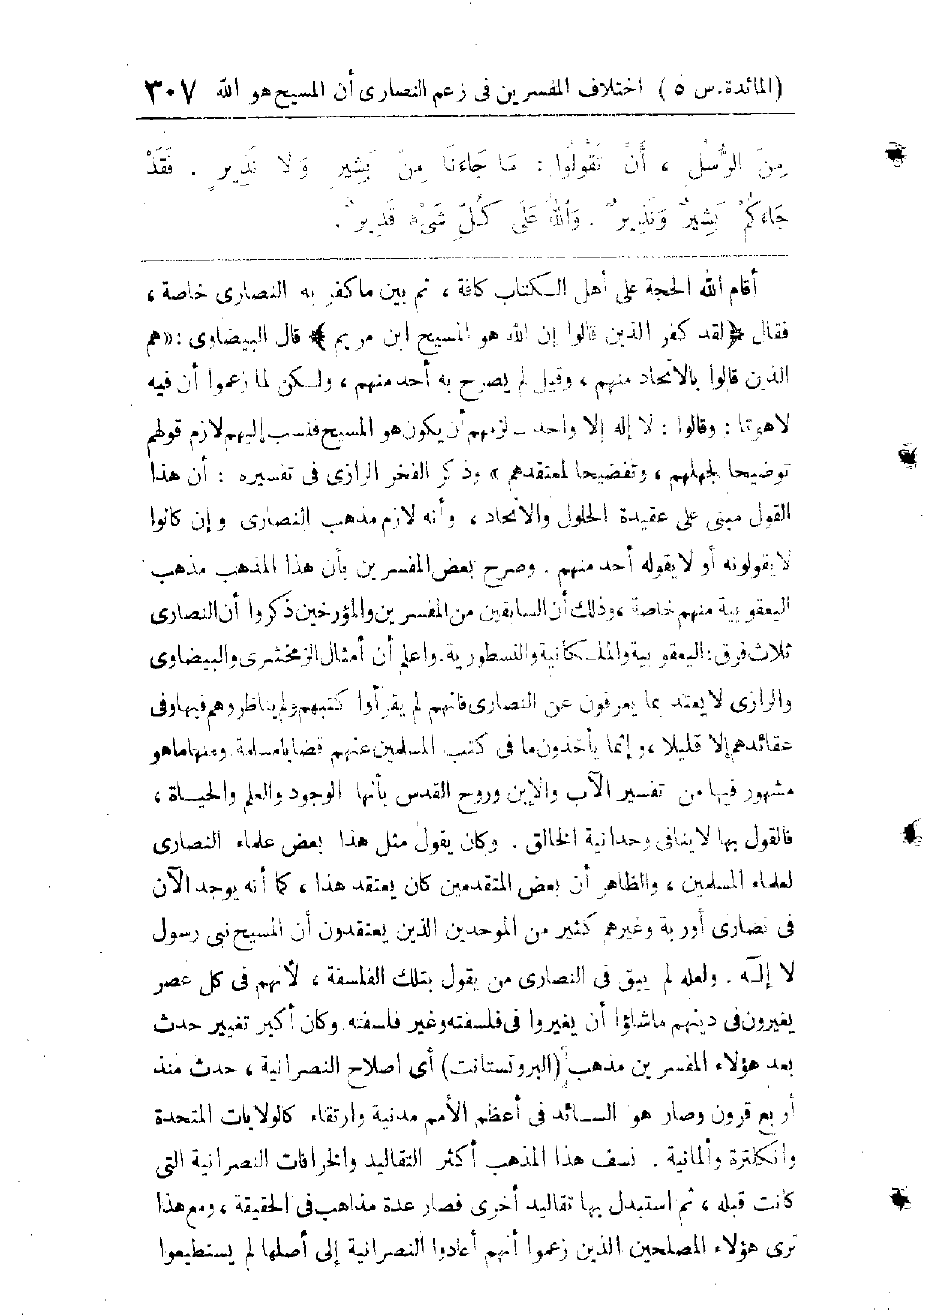 (المائدة. س ٥) اختلاف المفسرين فى زعم النصارى أن المسيح هو الله ٣٠٧
مِنَ الرُّسُلِ ، أَنْ تَقُولُوا : مَا جَاءَنَا مِنْ بَشِيرٍ وَلَا نَذِيرٍ . فَقَدْ
جَاءَكُمْ بَشِيرٌ وَنَذِيرٌ . وَاللهُ عَلَى كُلِّ شَىْءٍ قَدِيرٌ .
أقام الله الحجة على أهل الكتاب كافة ، ثم بين ما كفر به النصارى خاصة ،
فقال ﴿ لقد كفر الذين قالوا إن الله هو المسيح ابن مريم ﴾ قال البيضاوى : «هم
الذين قالوا بالاتحاد منهم ، وقيل لم يصرح به أحد منهم ، ولكن لما زعموا أن فيه
لاهوتا : وقالوا : لا إله إلا واحد ــ لزمهم أن يكون هو المسيح فنسب إليهم لازم قولهم
توضيحا لجهلهم ، وتفضيحا لمعتقدهم » وذكر الفخر الرازى فى تفسيره : أن هذا
القول مبنى على عقيدة الحلول والاتحاد ، وأنه لازم مذهب النصارى وإن كانوا
لا يقولونه أو لا يقوله أحد منهم . وصرح بعض المفسرين بأن هذا المذهب مذهب
اليعقوبية منهم خاصة ، وذلك أن السابقين من المفسرين والمؤرخين ذكروا أن النصارى
ثلاث فرق : اليعقوبية والملكانية والنسطورية. واعلم أن أمثال الزمخشرى والبيضاوى
والرازى لا يعتد بما يعرفون عن النصارى فانهم لم يقرأوا كتبهم ولم يناظروهم فيها وفى
عقائدهم إلا قليلا ، وإنما يأخذون ما فى كتب المسلمين عنهم قضايا مسلمة ومنها ما هو
مشهور فيها من تفسير الآب والابن وروح القدس بأنها الوجود والعلم والحياة ،
فالقول بها لا ينافى وحدانية الخالق . وكان يقول مثل هذا بعض علماء النصارى
لعلماء المسلمين ، والظاهر أن بعض المتقدمين كان يعتقد هذا ، كما أنه يوجد الآن
فى نصارى أوربة وغيرهم كثير من الموحدين الذين يعتقدون أن المسيح نبى رسول
لا إله . ولعله لم يبق فى النصارى من يقول بتلك الفلسفة ، لأنهم فى كل عصر
يغيرون فى دينهم ما شاؤا أن يغيروا فى فلسفته وغير فلسفته. وكان أكبر تغيير حدث
بعد هؤلاء المفسرين مذهب (البروتستانت) أى اصلاح النصرانية ، حدث منذ
أربع قرون وصار هو السائد فى أعظم الأمم مدنية وارتقاء كالولايات المتحدة
وانكلترة وألمانية . نسف هذا المذهب أكثر التقاليد والخرافات النصرانية التى
كانت قبله ، ثم استبدل بها تقاليد أخرى فصار عدة مذاهب فى الحقيقة ، ومع هذا
ترى هؤلاء المصلحين الذين زعموا أنهم أعادوا النصرانية إلى أصلها لم يستطيعوا